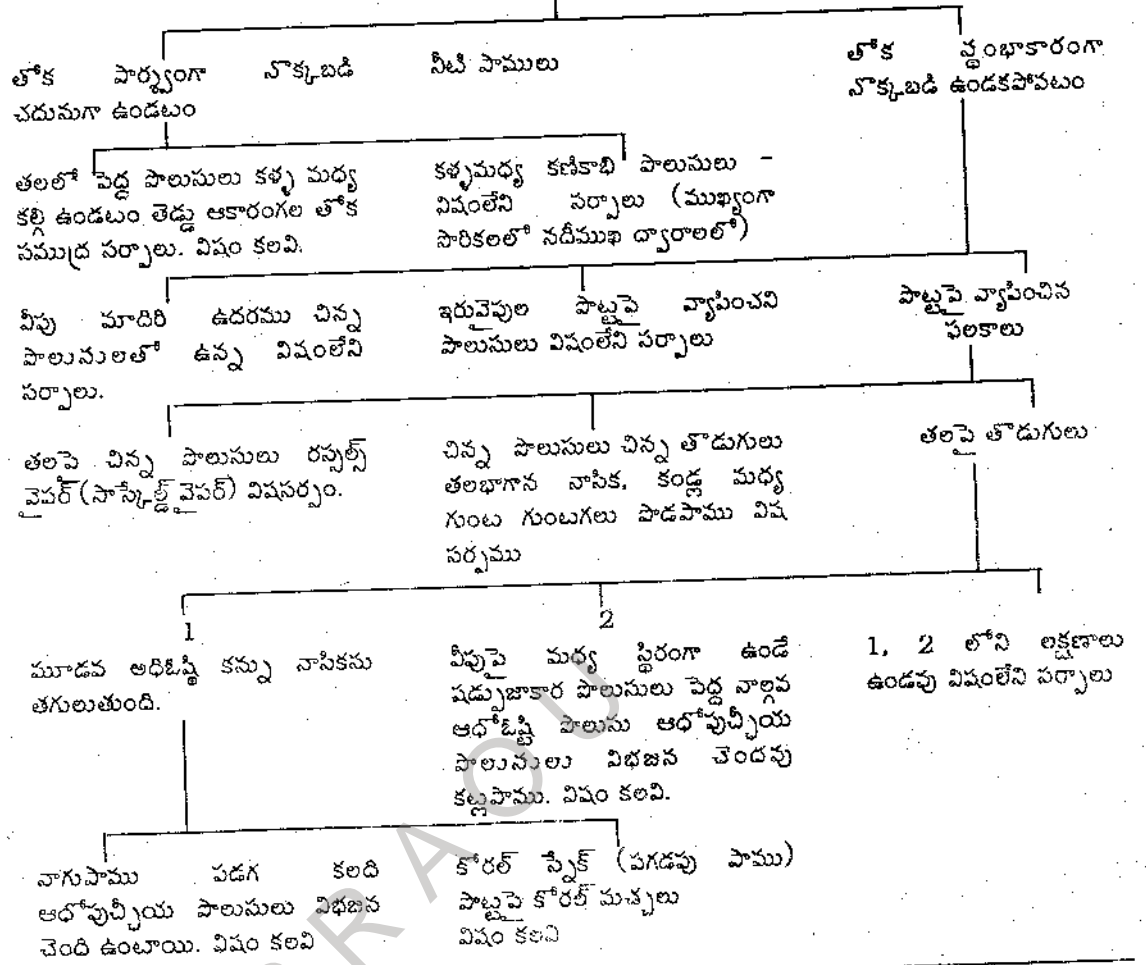 తోక పార్శ్వంగా నొక్కబడి నీటి పాములు
చదునుగా ఉండటం
తోక స్థంభాకారంగా
నొక్కబడి ఉండకపోవటం
తలలో పెద్ద పొలుసులు కళ్ళ మధ్య
కల్గి ఉండటం తెడ్డు ఆకారంగల తోక
సముద్ర సర్పాలు. విషం కలవి.
కళ్ళమధ్య కణికాభి పొలుసులు -
విషంలేని సర్పాలు (ముఖ్యంగా
సొరికలలో నదీముఖ ద్వారాలలో)
వీపు మాదిరి ఉదరము చిన్న
పొలుసులతో ఉన్న విషంలేని
సర్పాలు.
ఇరువైపుల పొట్టపై వ్యాపించని
పొలుసులు విషంలేని సర్పాలు
పొట్టపై వ్యాపించిన
ఫలకాలు
తలపై చిన్న పొలుసులు రస్సల్స్
వైపర్ (సాస్కేల్డ్ వైపర్) విషసర్పం.
చిన్న పొలుసులు చిన్న తొడుగులు
తలభాగాన నాసిక, కండ్ల మధ్య
గుంట గుంటగలు పొడపాము విష
సర్పము
తలపై తొడుగులు
1
మూడవ అధిఓష్ఠి కన్ను నాసికను
తగులుతుంది.
2
వీపుపై మధ్య స్థిరంగా ఉండే
షడ్భుజాకార పొలుసులు పెద్ద నాల్గవ
ఆధోఓష్ఠి పొలుసు ఆధోపుచ్ఛీయ
పొలుసులు విభజన చెందవు
కట్లపాము. విషం కలవి.
1, 2 లోని లక్షణాలు
ఉండవు విషంలేని సర్పాలు
నాగుపాము పడగ కలది
ఆధోపుచ్ఛీయ పొలుసులు విభజన
చెంది ఉంటాయి. విషం కలవి
కోరల్ స్నేక్ (పగడపు పాము)
పొట్టపై కోరల్ మచ్చలు
విషం కలవి
RAOU